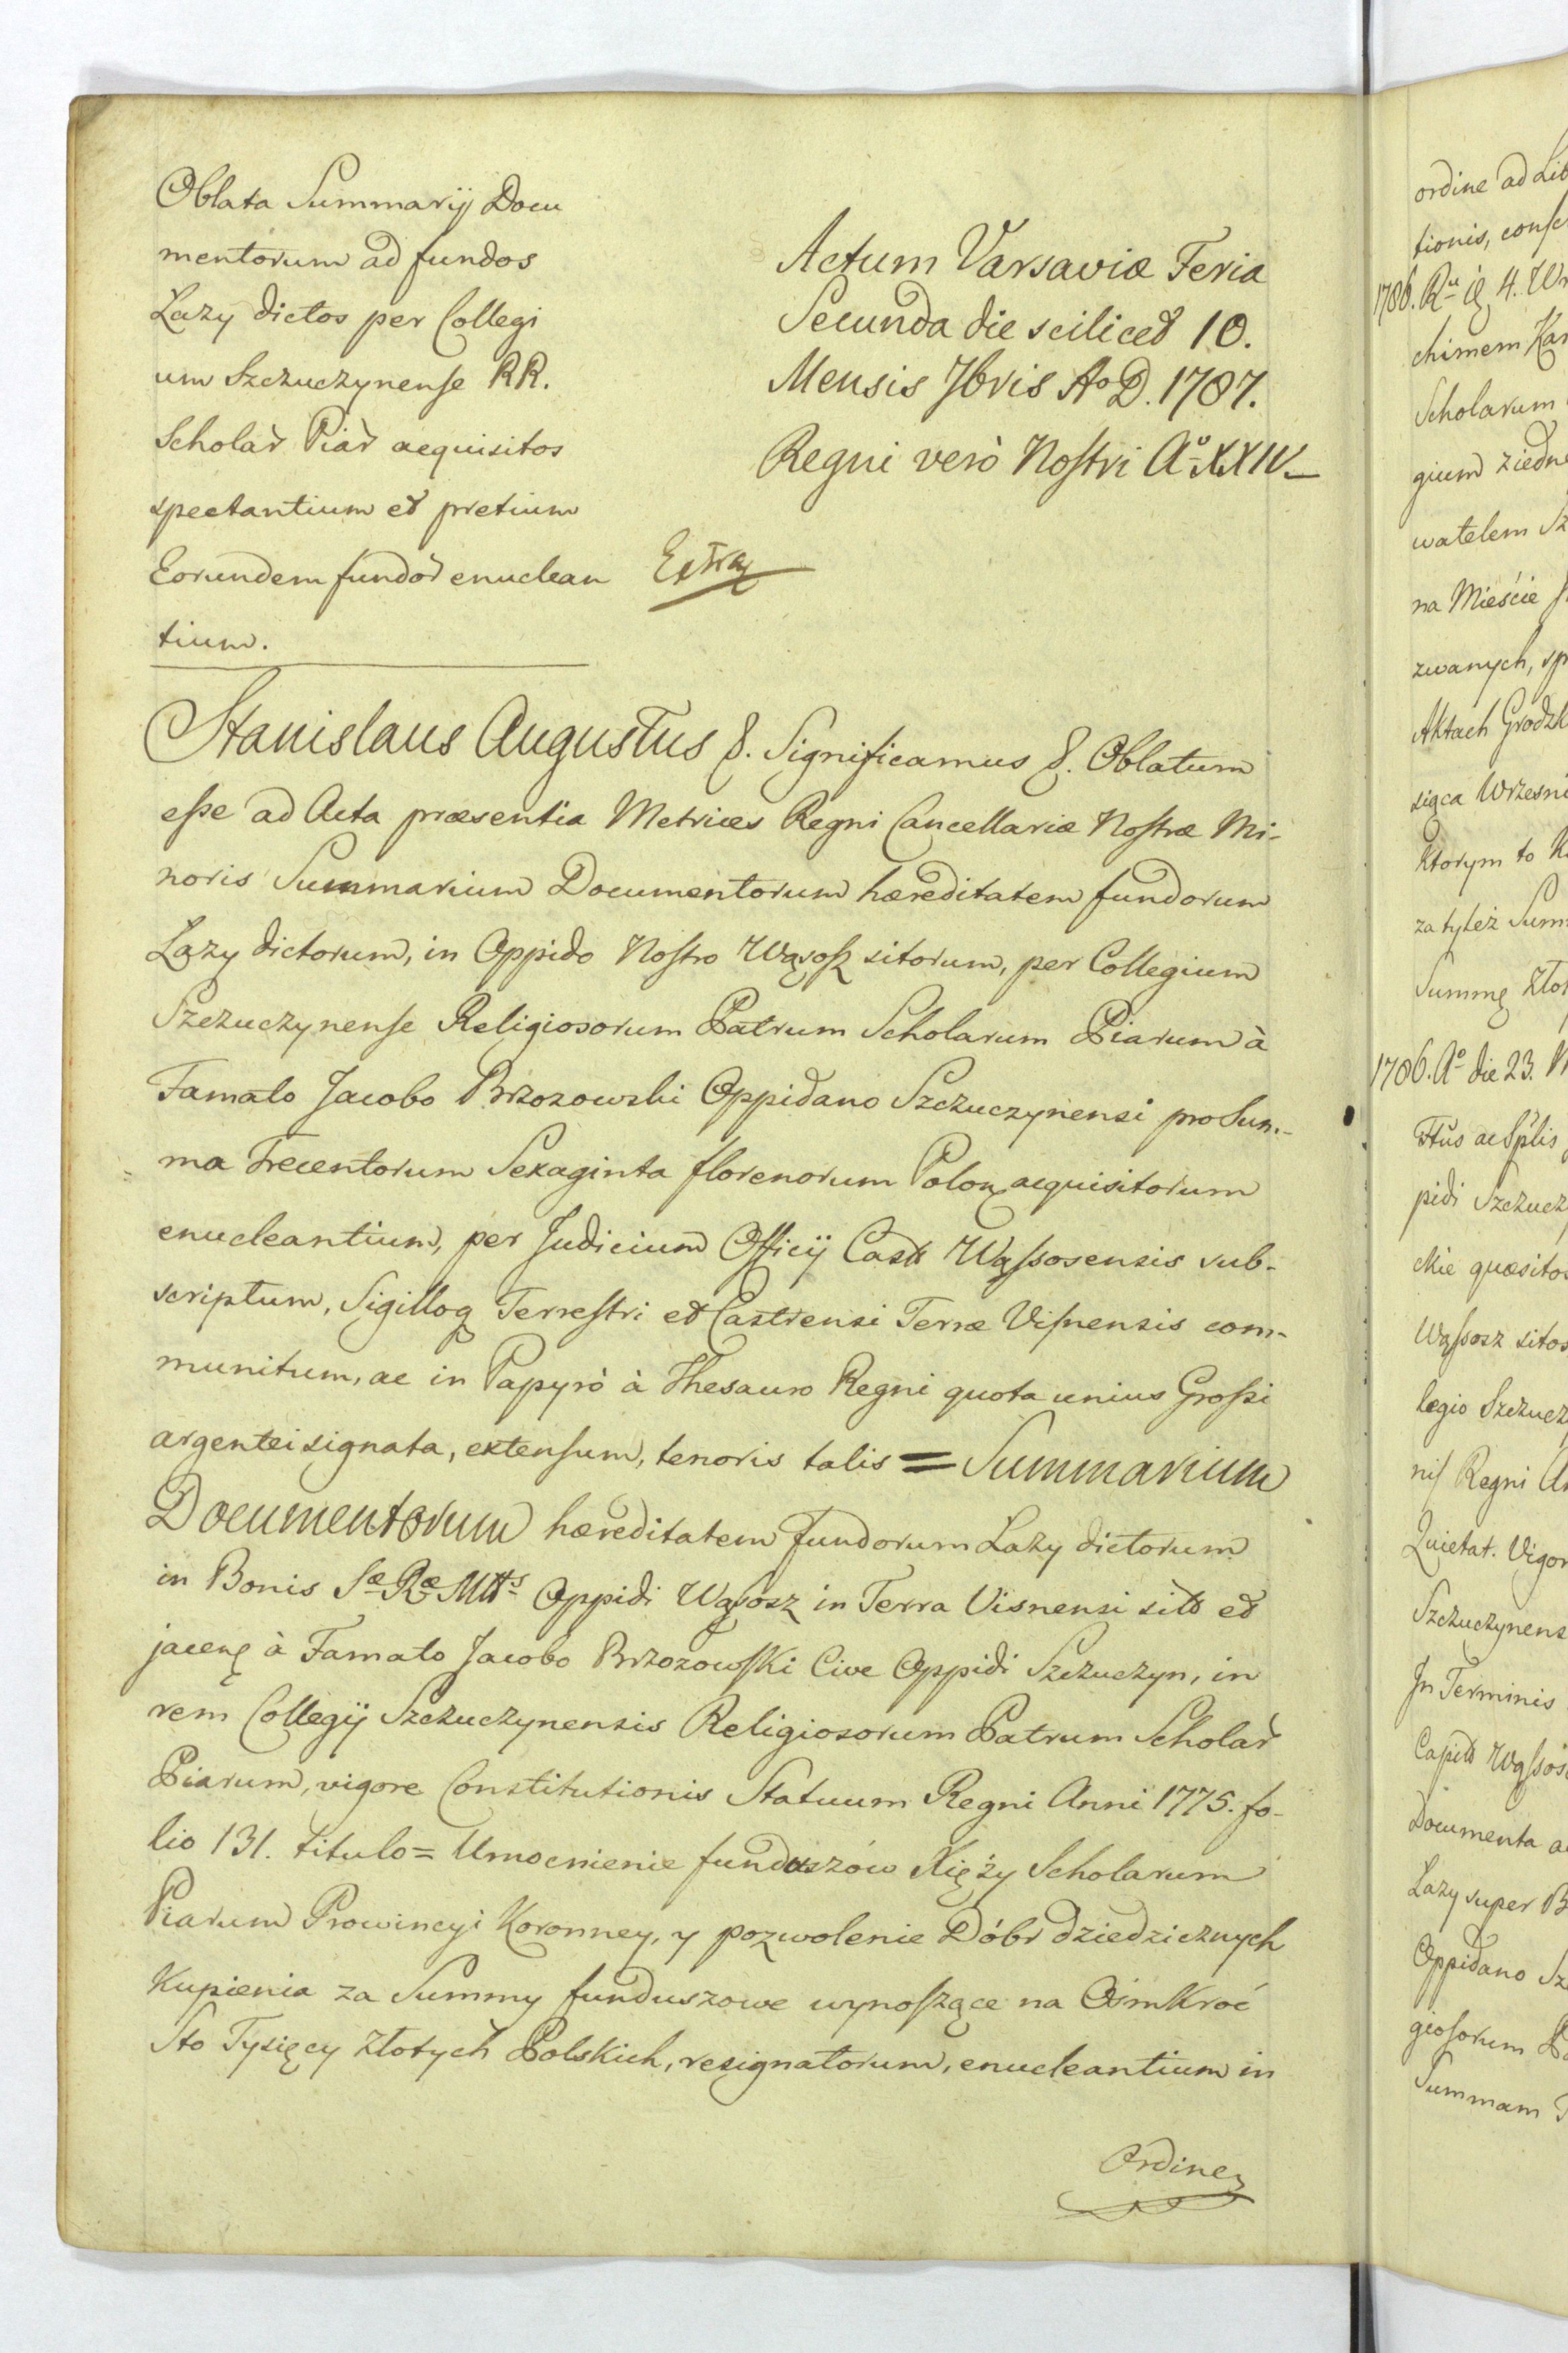 Oblata Summarij Docu
mentorum ad fundos
Lazy dictos per Collegi
um Szczuczynense RR.
Scholar Piar acquisitos
spectantium et pretium
Eorundem fundor enuclean
tium.
Actum Varsaviæ Feria
Secunda die scilicet 10.
Mensis 7bris Ao D. 1787.
Regni verò Nostri Ao XXIV
Extrag
Stanislaus Augustus &. Significamus &. Oblatum
esse ad Acta præsentia Metrices Regni Cancellariæ Nostræ Mi-
noris Summarium Documentorum hæreditatem fundorum
Lązy dictorum, in Oppido Nostro Wąsosz sitorum, per Collegium
Szczuczynense Religiosorum Patrum Scholarum Piarum à
Famato Jacobo Brzozowski Oppidano Szczuczynensi pro Sum-
ma Trecentorum Sexaginta florenorum Polon acquisitorum
enucleantium, per Judicium Officij Castr Wąssosensis sub-
scriptum, Sigilloq Terrestri et Castrensi Terræ Visnensis com-
munitum, ac in Papyrò à Thesauro Regni quota unius Grossi
argentei signata, extensum, tenoris talis = Summarium
Documentorum hæreditatem fundorum Lazy dictorum
in Bonis Sæ Ræ Mttis Oppidi Wąsosz in Terra Visnensi sito et
jacen à Famato Jacobo Brzozowski Cive Oppidi Szczuczyn, in
rem Collegij Szczuczynensis Religiosorum Patrum Scholar
Piarum, vigore Constitutionis Statuum Regni Anni 1775. fo-
lio 131. titulo = Umocnienie funduszów Xięży Scholarum
Piarum Prowincyi Koronney, y pozwolenie Dóbr dziedzicznych
Kupienia za Summy funduszowe wynoszące na Ośmkroć
Sto Tysięcy Złotych Polskich, resignatorum, enucleantium in
Ordine
ordine ad Lib
tionis, conse
1786. Ru ię 4. Wr
chimem Kar
Scholarum
gium ziedn
watelem Sz
na Mieście
zwanych, sp
Aktach Grodzk
siąca Wrzesni
Ktorym to K
za tyleż Sum
Summę Zło
1786. Ao die 23.
pidi Szczucz
ckie quæsito
Wąssosz sitos
legio Szczucz
nis Regni
Quietat. Vigor
Szczuczynens
In Terminis
Capit Wąssos
Documenta a
Lazy super B
Oppidano Sz
giosorum Pa
Summam T